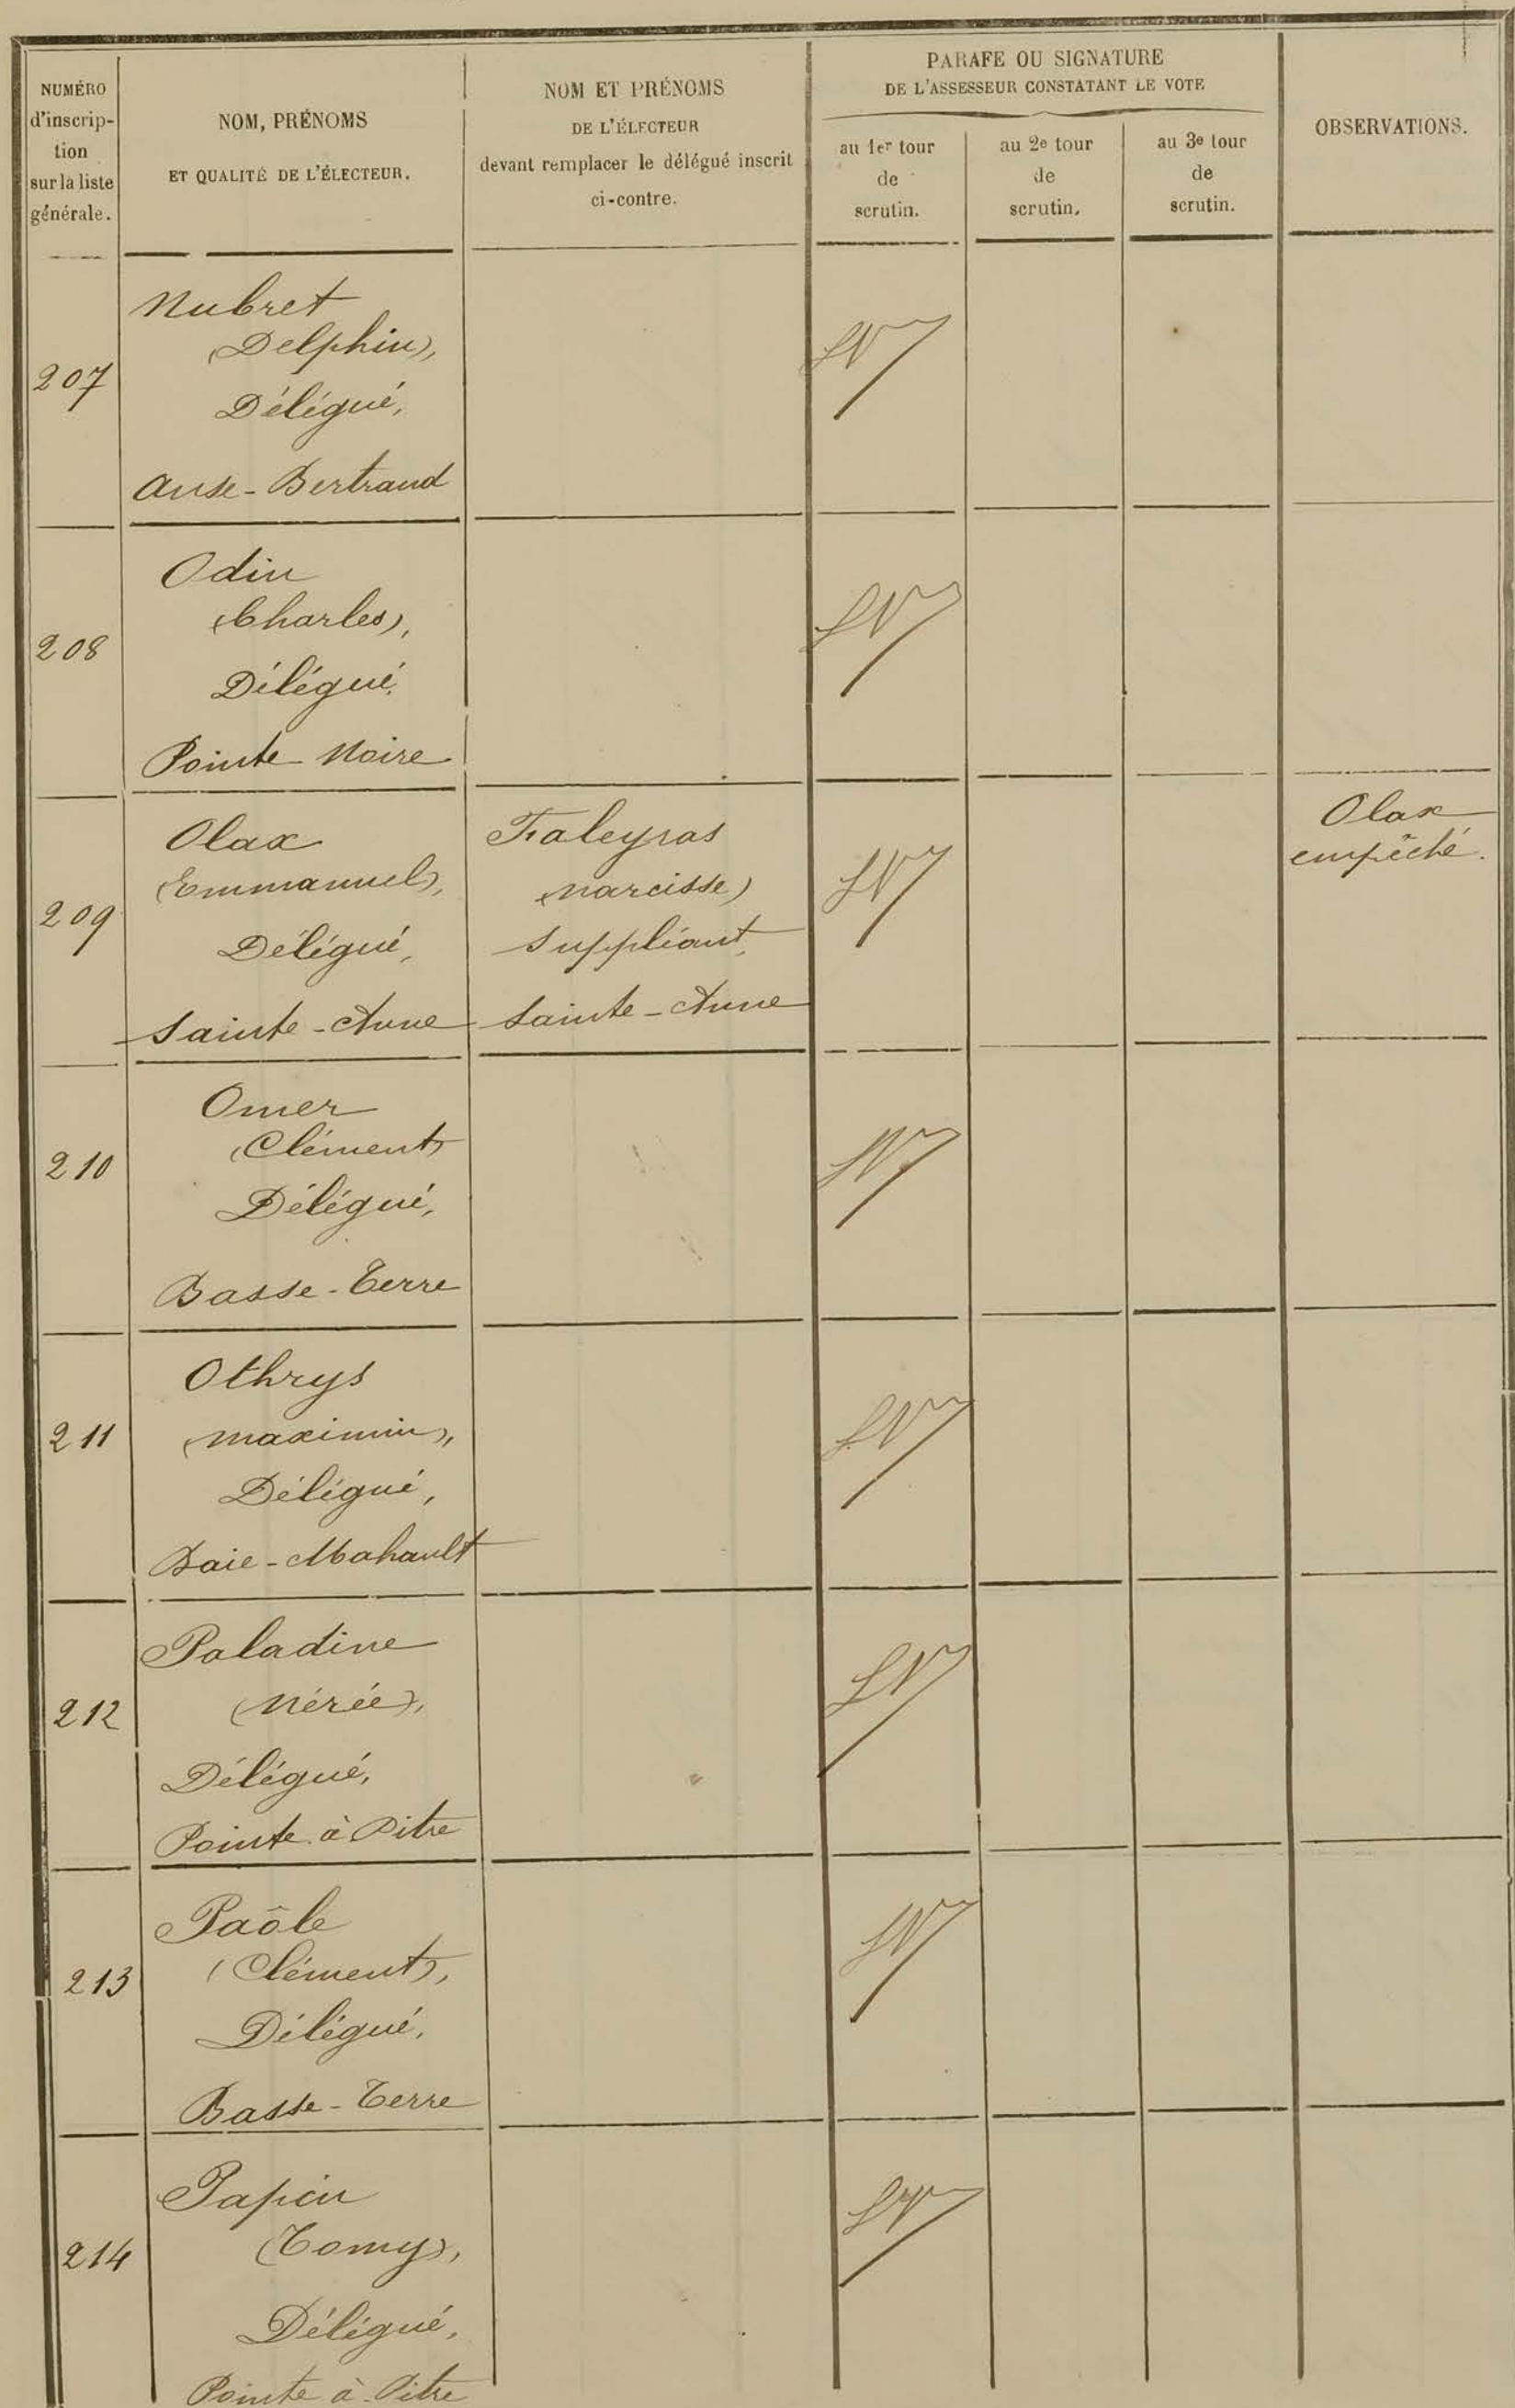 NUMÉRO
d'inscrip-
tion
sur la liste
générale.
NOM, PRÉNOMS
ET QUALITÉ DE L'ÉLECTEUR.
NOM ET PRÉNOMS
DE L'ÉLECTEUR
devant remplacer le délégué inscrit
ci-contre.
PARAFE OU SIGNATURE
DE L'ASSESSEUR CONSTATANT LE VOTE
au 1er tour
de
scrutin.
au 2e tour
de
scrutin.
au 3e tour
de
scrutin.
OBSERVATIONS.
207
Nubret
(Delphin),
Délégué,
Anse-Bertrand
208
Odin
(Charles),
Délégué,
Pointe-Noire
209
Olax
(Emmanuel),
Délégué,
Sainte-Anne
Faleyras
(Narcisse)
Suppléant,
Sainte-Anne
Olax
empêché.
210
Omer
(Clément)
Délégué,
Basse-Terre
211
Othrys
(Maximin),
Délégué,
Baie-Mahault
212
Paladine
(Nérée),
Délégué,
Pointe à Pitre
213
Paôle
(Clément),
Délégué,
Basse-Terre
214
Papin
(Tomy),
Délégué,
Pointe à Pitre